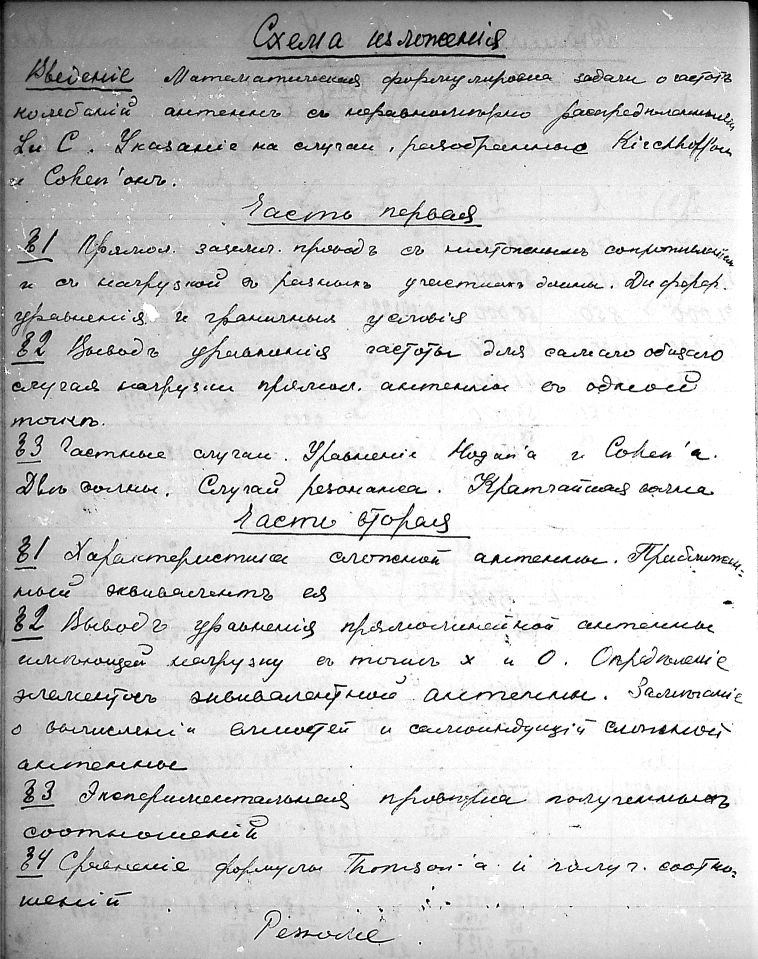 Схема изложенія
Введеніе Математическая формулировка задачи о частотѣ
колебаній антеннъ съ неравномѣрно распредѣленными
L и C. Указаніе на случаи, разобранные Kirchhoff'омъ
и Cohen'омъ.
Часть первая
§1 Прямол. заземл. проводъ съ ничтожнымъ сопротивленіем
и съ нагрузкой въ разныхъ участкахъ длины. Диффер.
уравненія и граничныя условія
§2 Выводъ уравненія частоты для самаго общаго
случая нагрузки прямол. антенны въ одной
точкѣ.
§3 Частные случаи. Уравненіе и Cohen'а.
Двѣ волны. Случай резонанса. Кратчайшая волна
Часть вторая
§1 Характеристика сложной антенны. Приближен-
ный эквивалентъ ея
§2 Выводъ уравненія прямолинейной антенны
имѣющей нагрузку въ точкѣ x и 0. Опредѣленіе
элементовъ эквивалентной антенны. Замѣчаніе
о вычисленіи емкостей и самоиндукцій сложной
антенны
§3 Экспериментальная провѣрка полученныхъ
соотношеній
§4 Сравненіе формулы Thomson'а и получ. соотно-
шеній
Резюме